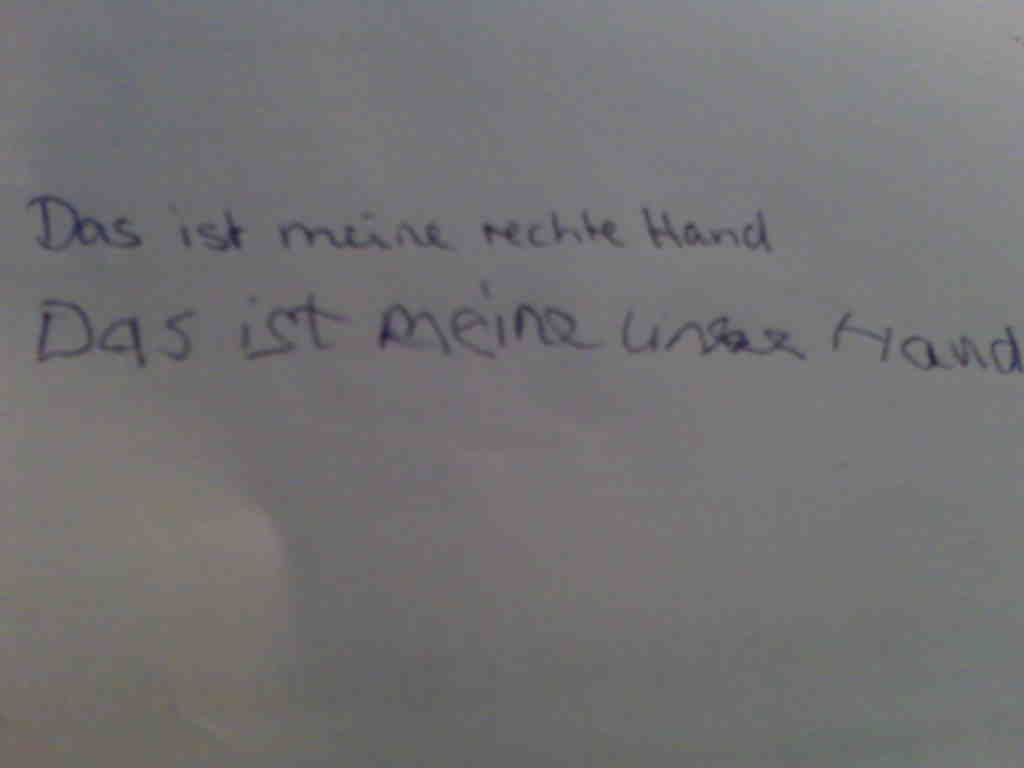 Das ist meine rechte Hand
Das ist meine Hand